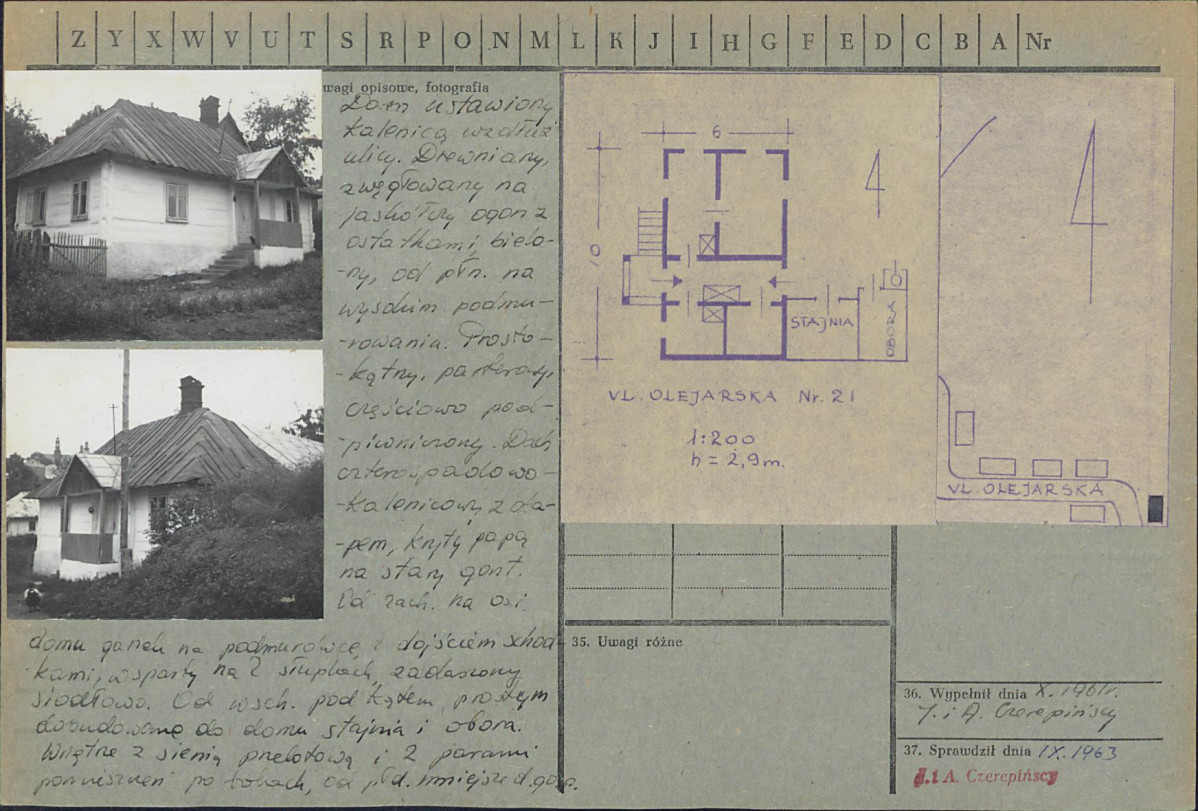 Z Y X W V U T S R P O N M L K J I H G F E D C B A Nr
wagi opisowe, fotografia
Dom ustawiony
kalenicą wzdłuż
ulicy. Drewniany,
zwęgłowany na
jaskółczy ogon z
ostatkami, bielo-
-ny, od płn. na
wysokim podmu-
-rowaniu. Prosto-
-kątny, parterowy,
częściowo pod-
-piwniczony. Dach
czterospadowo-
-kalenicowy z oka-
-pem, kryty papą
na stary gont.
Od zach. na osi
domu ganek na podmurówce z dojściem schod-
-kami, wsparty na 2 słupkach, zadaszony
siodłowo. Od wsch. pod kątem prostym
dobudowane do domu stajnia i obora.
Wnętrze z sienią przelotową i 2 parami
pomieszczeń po bokach, od płd. mniejsze d. gosp.
6
10
4
STAJNIA
OBORA
UL. OLEJARSKA Nr. 21
1:200
h = 2,9 m.
UL. OLEJARSKA
35. Uwagi różne
36. Wypełnił dnia X. 1961r.
J. i A. Czerepińscy
37. Sprawdził dnia IX. 1963
J. i A. Czerepińscy